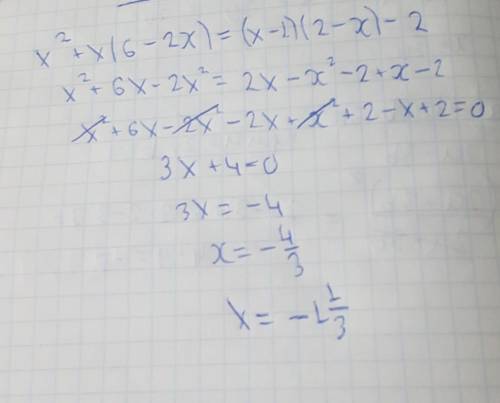 x² + x(6 - 2x) = (x - 1)(2 - x) - 2
x² + 6x - 2x² = 2x - x² - 2 + x - 2
x² + 6x - 2x² - 2x + x² + 2 - x + 2 = 0
3x + 4 = 0
3x = -4
x = -4/3
x = -1 1/3